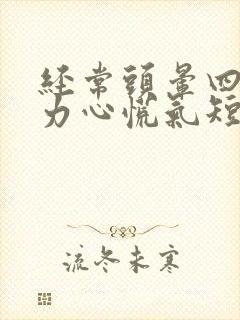 經常頭暈四
力心慌氣短
流冬未寒